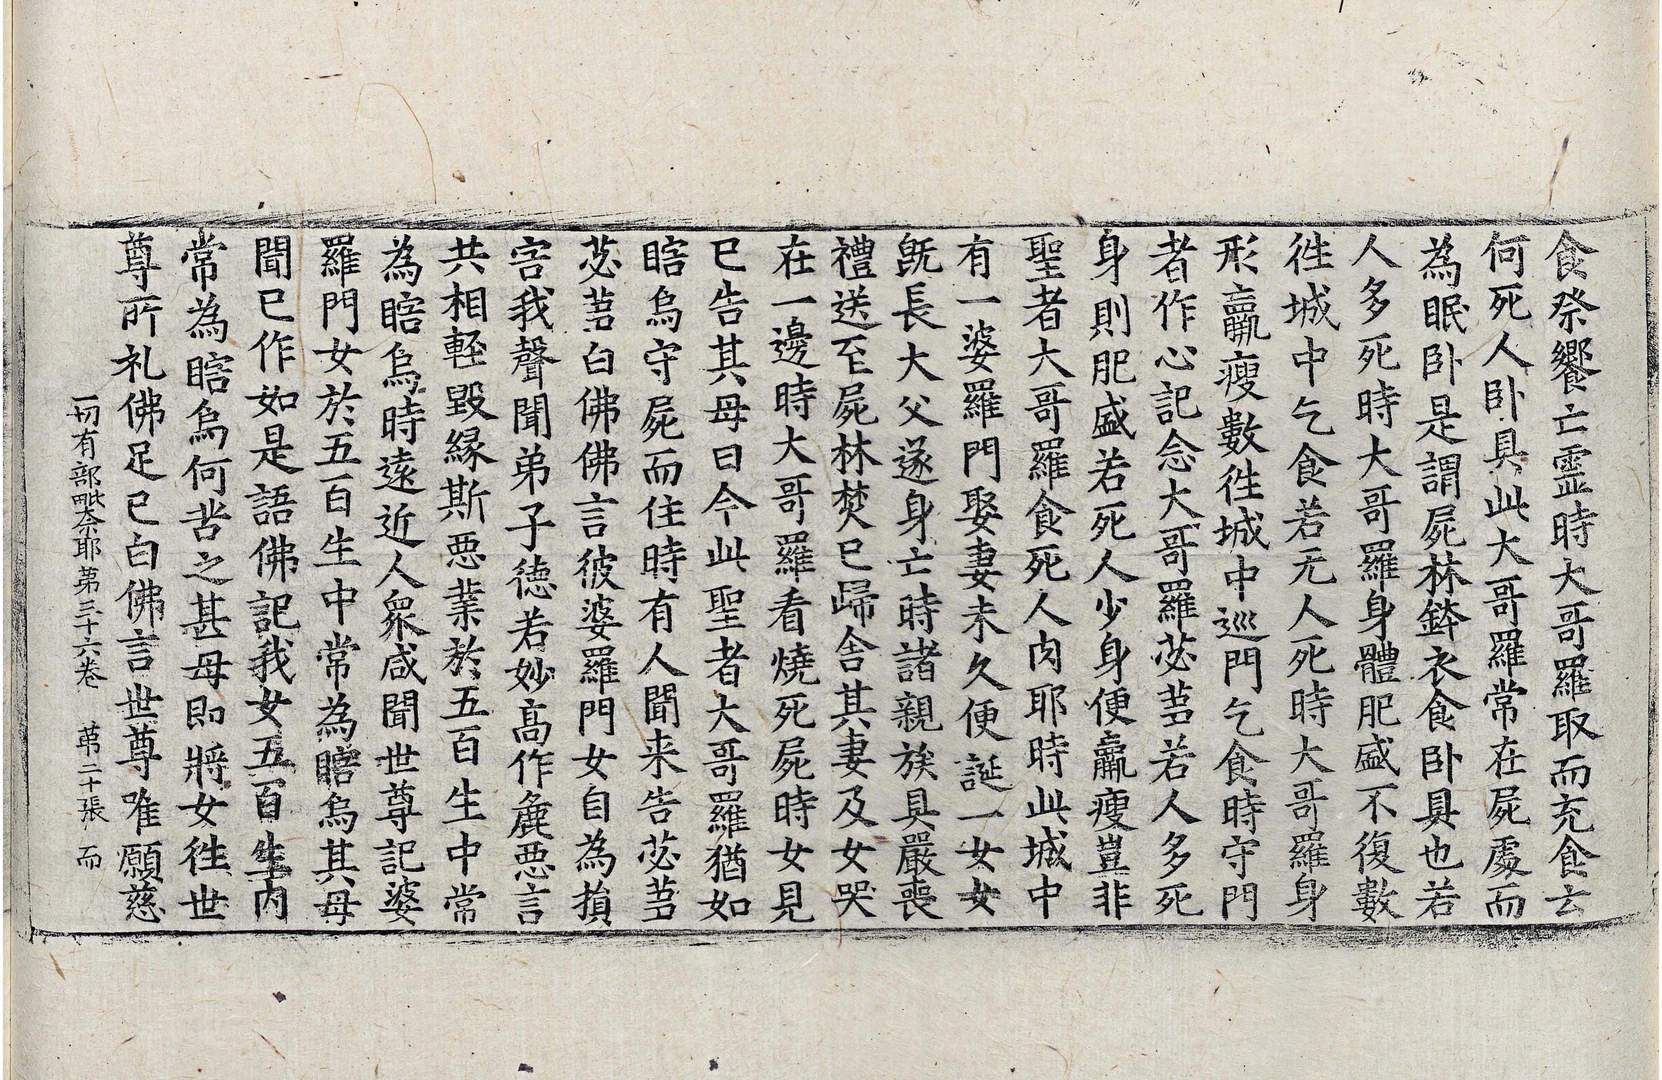 食祭饗亡靈時大哥羅取而充食云
何死人卧具此大哥羅常在屍處而
為眠卧是謂屍林鉢衣食卧具也若
人多死時大哥羅身體肥盛不復數
徃城中乞食若无人死時大哥羅身
形羸瘦數徃城中巡門乞食時守門
者作心記念大哥羅苾蒭若人多死
身則肥盛若死人少身便羸瘦豈非
聖者大哥羅食死人肉耶時此城中
有一婆羅門娶妻未久便誕一女女
旣長大父遂身亡時諸親族具嚴喪
禮送至屍林焚已歸舍其妻及女哭
在一邊時大哥羅看燒死屍時女見
已告其母曰今此聖者大哥羅猶如
瞎烏守屍而住時有人聞来告苾蒭
苾蒭白佛佛言彼婆羅門女自為損
害我聲聞弟子德若妙高作麁惡言
共相輕毀縁斯惡業於五百生中常
為瞎烏時遠近人衆咸聞世尊記婆
羅門女於五百生中常為瞎烏其母
聞已作如是語佛記我女五百生內
常為瞎烏何苦之甚母即將女徃世
尊所礼佛足已白佛言世尊唯願慈
一切有部毗奈耶第三十六卷 第二十張 而